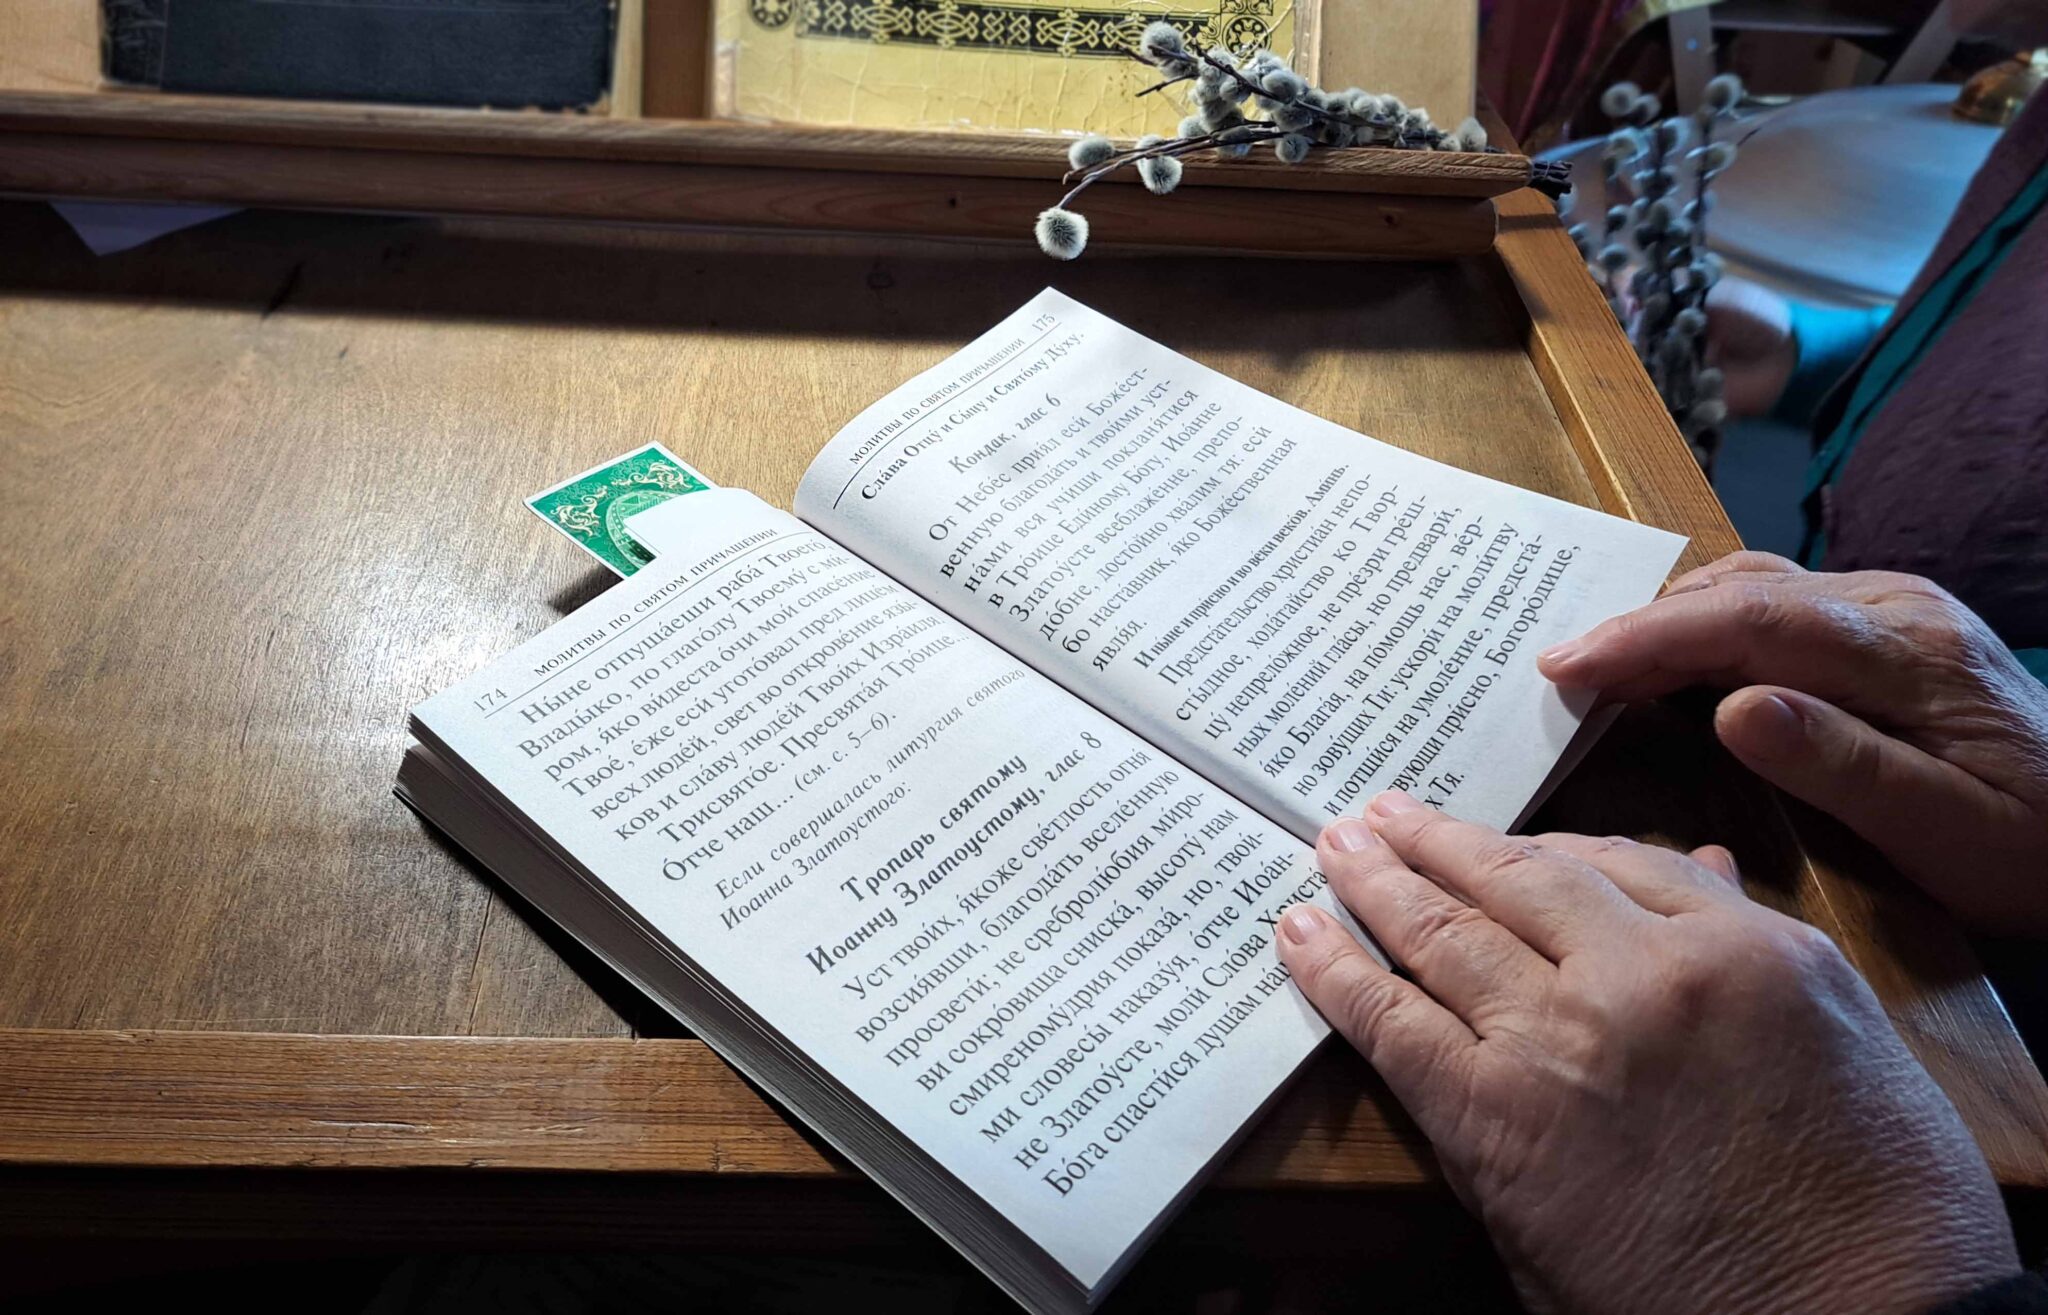 174
МОЛИТВЫ ПО СВЯТОМ ПРИЧАЩЕНИИ
Ны́не отпуща́еши раба́ Твоего́,
Влады́ко, по глаго́лу Твоему́ с ми-
ром, я́ко ви́деста о́чи мои́ спасе́ние
Твое́, е́же еси́ угото́вал пред лице́м
всех люде́й, свет во открове́ние язы́-
ков и сла́ву люде́й Твои́х Изра́иля.
Трисвято́е. Пресвята́я Тро́ице...
О́тче наш... (см. с. 5–6).
Если совершалась литургия святого
Иоанна Златоустого:
Тропарь святому
Иоанну Златоустому, глас 8
Уст твои́х, я́коже све́тлость огня́
возсия́вши, благода́ть вселе́нную
просвети́; не сребролю́бия миро-
ви сокро́вища сниска́, высоту́ нам
смиреному́дрия показа́, но, твои́-
ми словесы́ наказу́я, о́тче Иоа́н-
не Златоу́сте, моли́ Сло́ва Христа́
Бо́га спасти́ся душа́м
МОЛИТВЫ ПО СВЯТОМ ПРИЧАЩЕНИИ
175
Сла́ва Отцу́ и Сы́ну и Свято́му Ду́ху.
Кондак, глас 6
От Небе́с прия́л еси́ Боже́ст-
венную благода́ть и твои́ми уст-
на́ми вся учи́ши покланя́тися
в Тро́ице Еди́ному Бо́гу, Иоа́нне
Златоу́сте всеблаже́нне, препо-
до́бне, досто́йно хва́лим тя: еси́
бо наста́вник, я́ко Боже́ственная
явля́я.
И ны́не и при́сно и во ве́ки веко́в. Ами́нь.
Предста́тельство христиа́н непо-
сты́дное, хода́тайство ко Твор-
цу́ непрело́жное, не пре́зри гре́ш-
ных моле́ний гла́сы, но предвари́,
я́ко Блага́я, на по́мощь нас, ве́р-
но зову́щих Ти: ускори́ на моли́тву
и потщи́ся на умоле́ние, предста́-
вующи при́сно, Богоро́дице,
Тя.